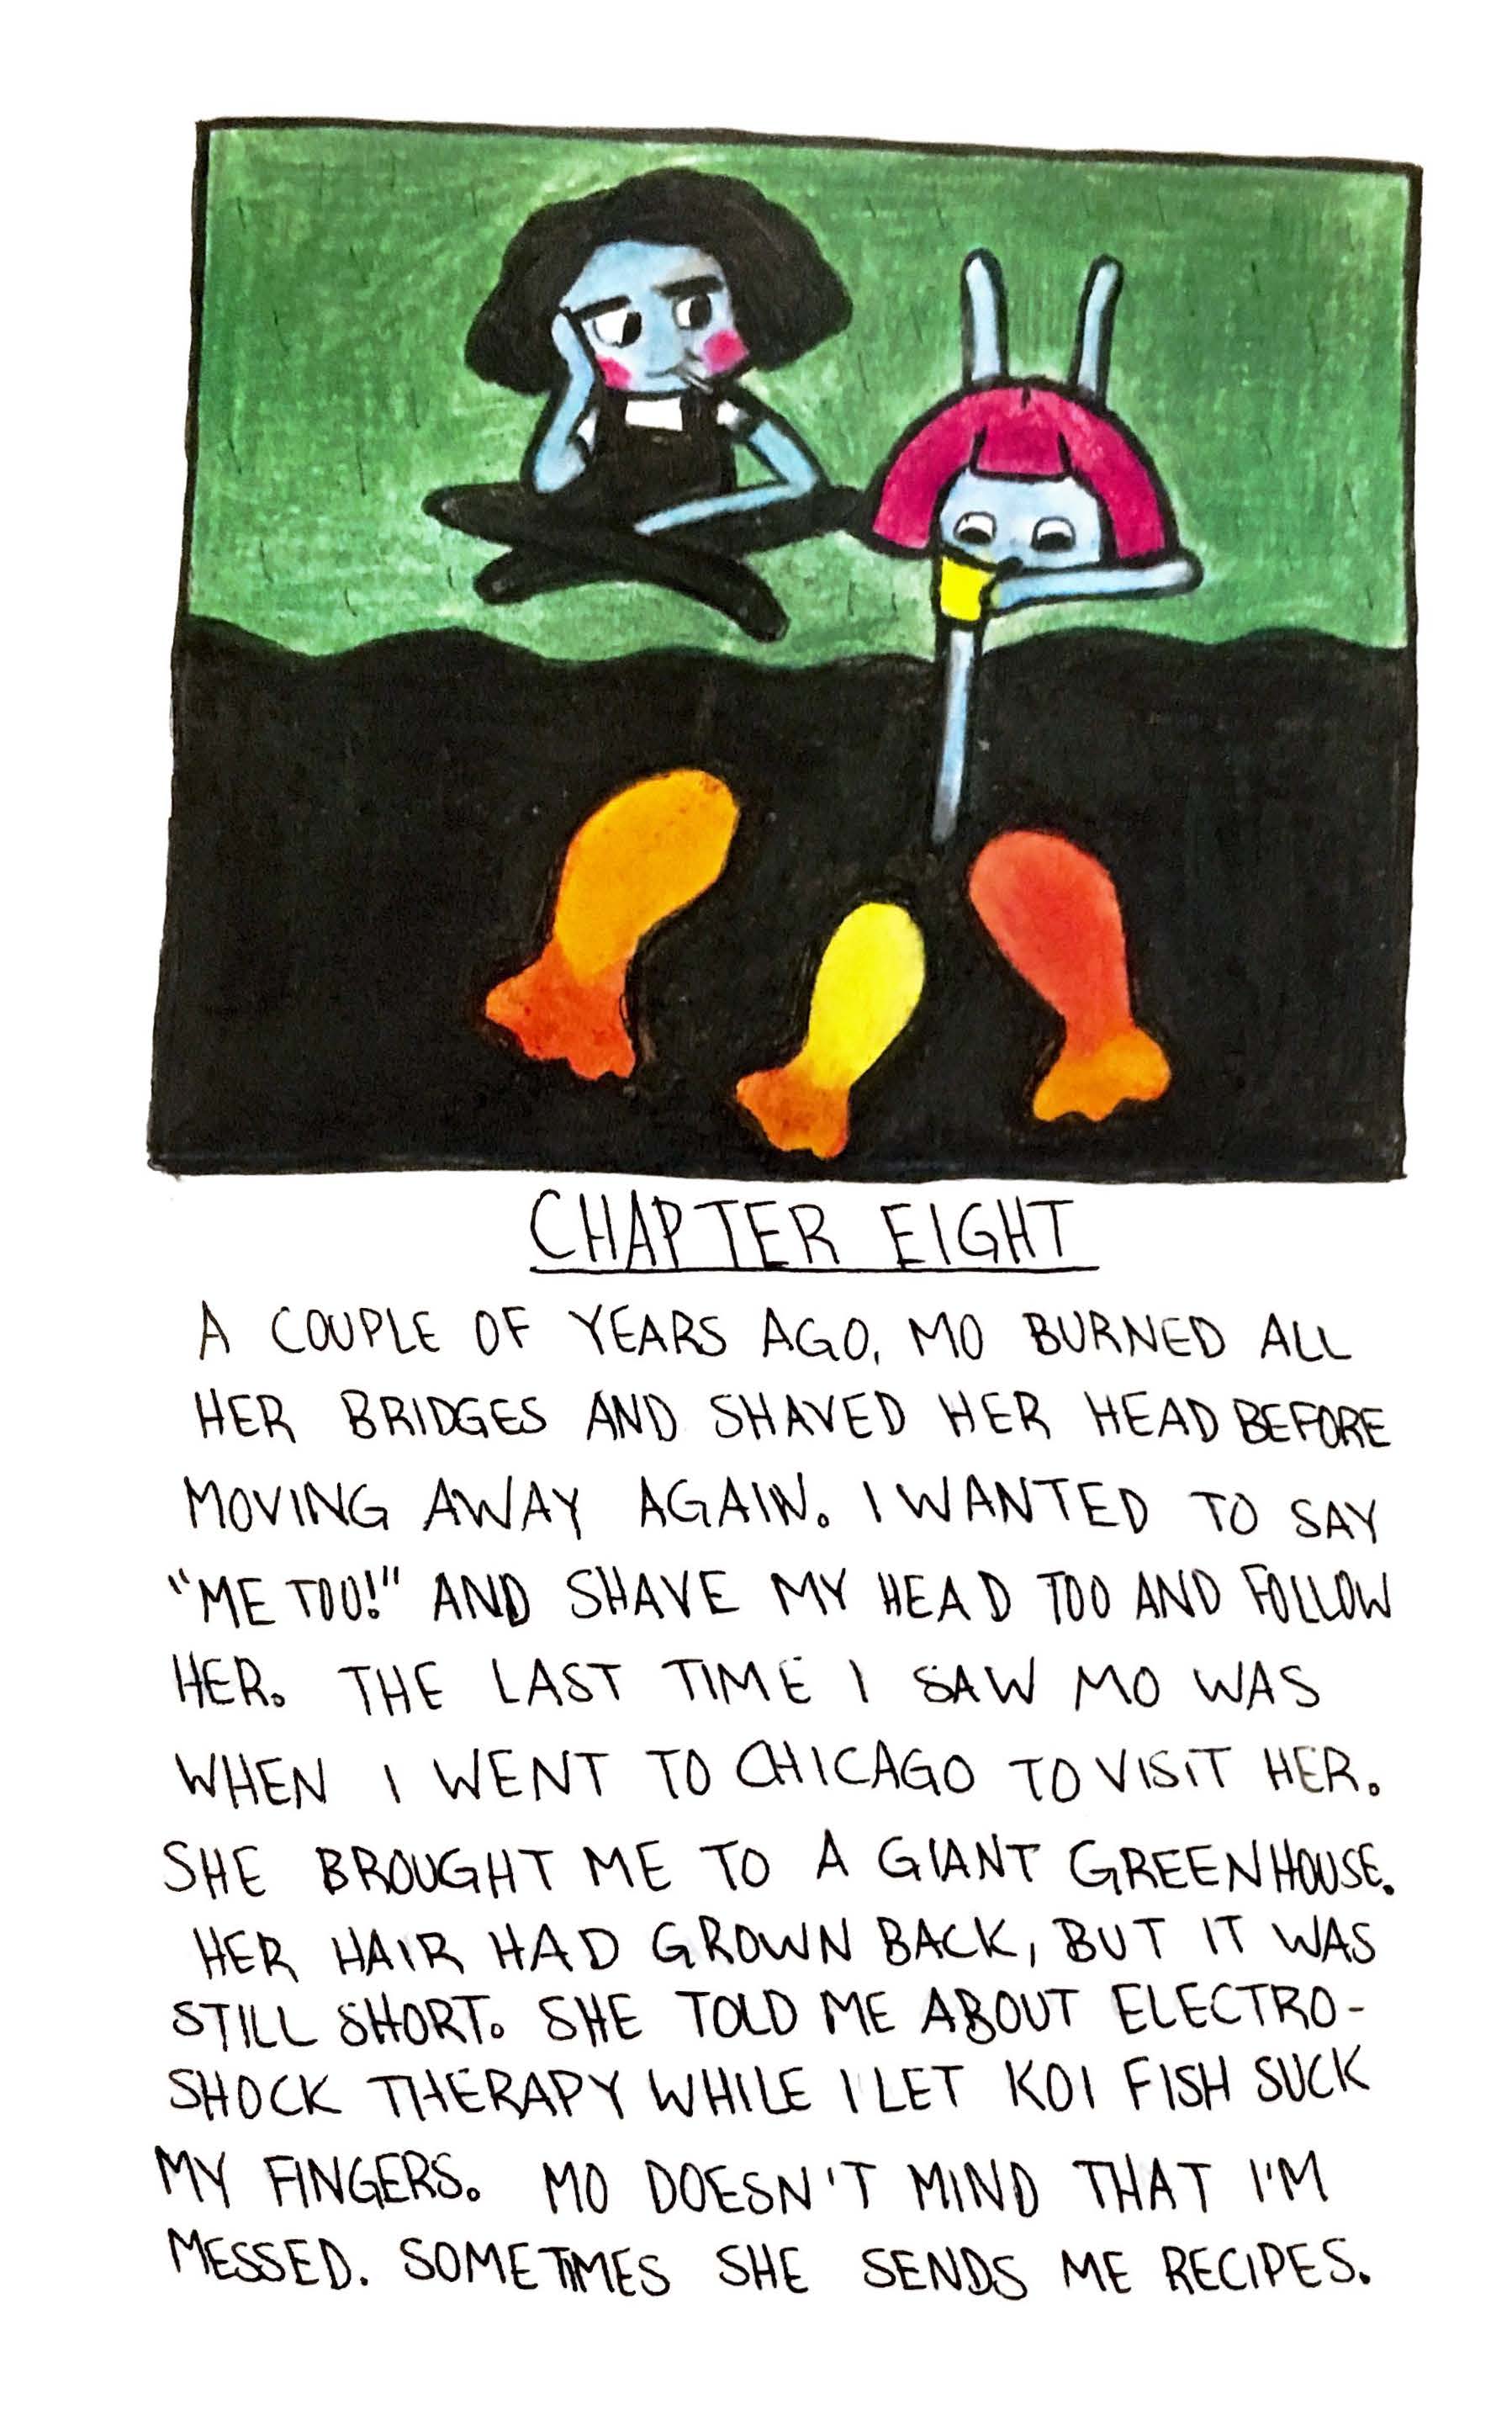 CHAPTER EIGHT
A COUPLE OF YEARS AGO, MO BURNED ALL
HER BRIDGES AND SHAVED HER HEAD BEFORE
MOVING AWAY AGAIN. I WANTED TO SAY
"ME TOO!" AND SHAVE MY HEAD TOO AND FOLLOW
HER. THE LAST TIME I SAW MO WAS
WHEN I WENT TO CHICAGO TO VISIT HER.
SHE BROUGHT ME TO A GIANT GREENHOUSE.
HER HAIR HAD GROWN BACK, BUT IT WAS
STILL SHORT. SHE TOLD ME ABOUT ELECTRO-
SHOCK THERAPY WHILE I LET KOI FISH SUCK
MY FINGERS. MO DOESN'T MIND THAT I'M
MESSED. SOMETIMES SHE SENDS ME RECIPES.